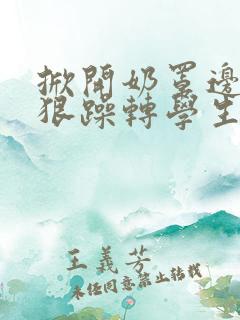 掀開奶罩邊
狠躁轉學生
王義芳
未經同意禁止轉載